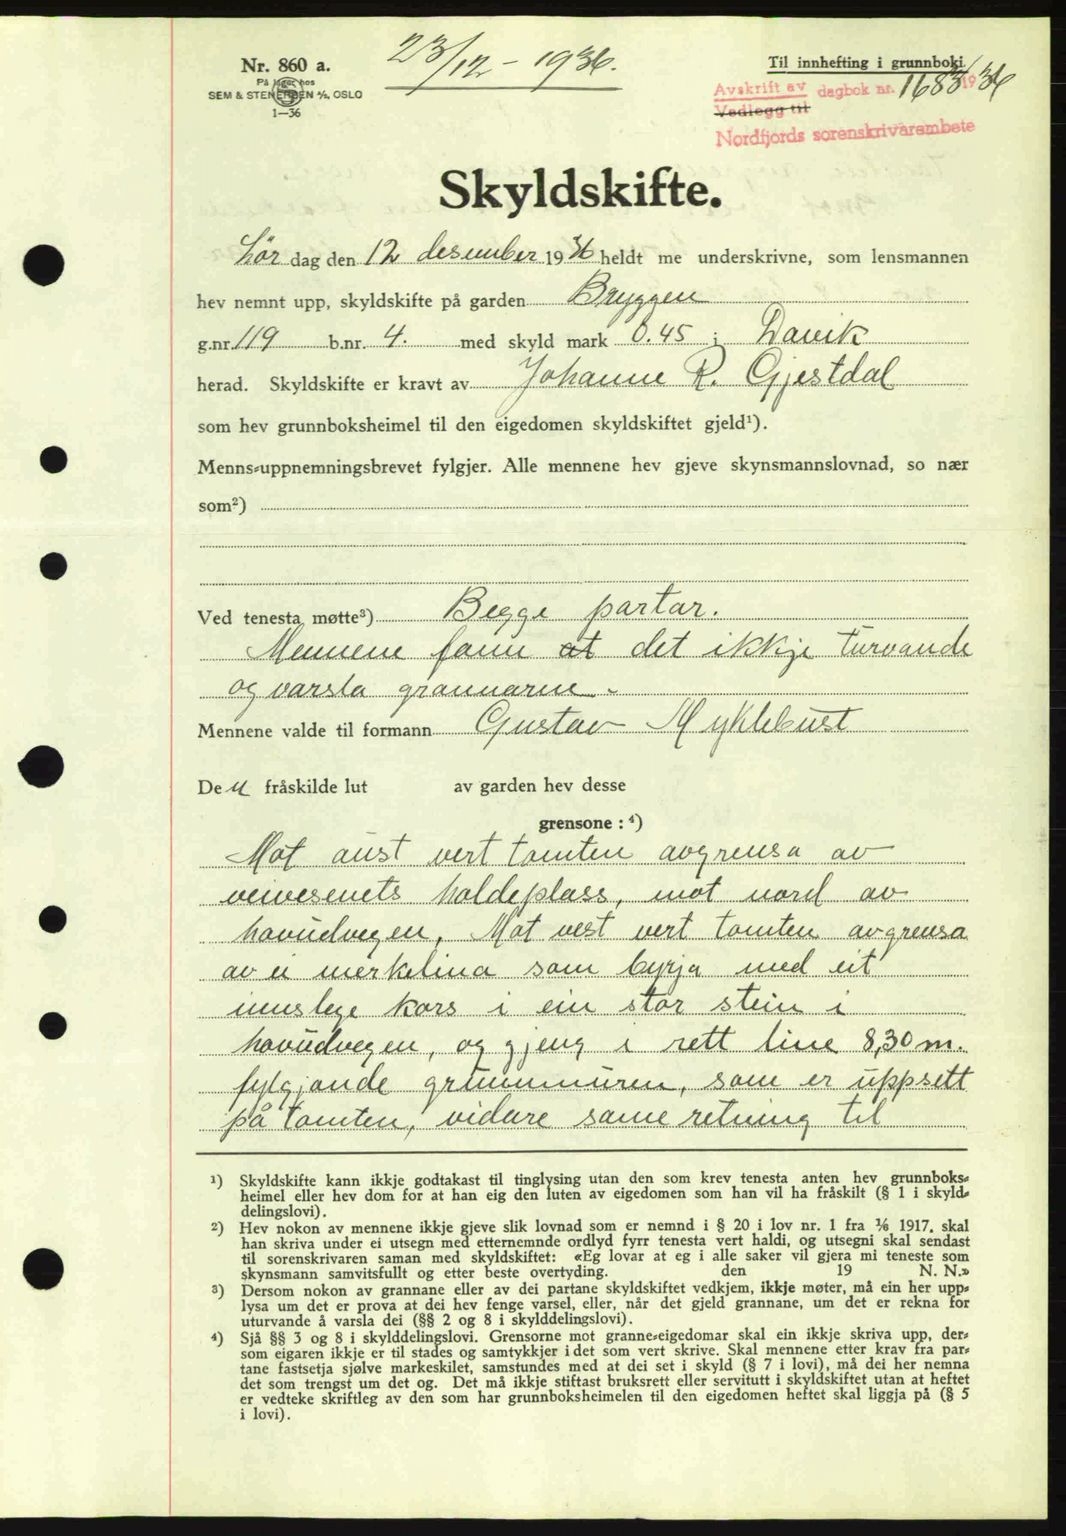 Nr. 860 a.
På lager hos
SEM & STENERSEN A/S, OSLO
1—36
23/12 - 1936.
Til innhefting i grunnboki.
Avskrift av dagbok nr. 1683/1936
Vedlegg til
Nordfjords sorenskrivarembete
Skyldskifte.
Lør dag den 12 desember 1936 heldt me underskrivne, som lensmannen
hev nemnt upp, skyldskifte på garden Bryggen
g.nr. 119 b.nr. 4. med skyld mark 0.45 i Davik
herad. Skyldskifte er kravt av Johanne R. Gjestdal
som hev grunnboksheimel til den eigedomen skyldskiftet gjeld¹).
Menns-uppnemningsbrevet fylgjer. Alle mennene hev gjeve skynsmannslovnad, so nær
som²)
Ved tenesta møtte³) Begge partar.
Mennene fann at det ikkje turvande
og varsla grannarne.
Mennene valde til formann Gustav Myklebust
Den fråskilde lut av garden hev desse
grensone : ⁴)
Mot aust vert tomten avgrensa av
veivesenets holdeplass, mot nord av
hovudvegen, Mot vest vert tomten avgrensa
av ei merkelina som byrja med eit
innslege kors i ein stor stein i
hovudvegen, og gjeng i rett line 8,30 m.
fylgjande grunnmuren, som er uppsett
på tomten, vidare same retning til
¹) Skyldskifte kann ikkje godtakast til tinglysing utan den som krev tenesta anten hev grunnboks-
heimel eller hev dom for at han eig den luten av eigedomen som han vil ha fråskilt (§ 1 i skyld-
delingslovi).
²) Hev nokon av mennene ikkje gjeve slik lovnad som er nemnd i § 20 i lov nr. 1 fra 1/6 1917, skal
han skriva under ei utsegn med etternemnde ordlyd fyrr tenesta vert haldi, og utsegni skal sendast
til sorenskrivaren saman med skyldskiftet: «Eg lovar at eg i alle saker vil gjera mi teneste som
skynsmann samvitsfullt og etter beste overtyding. den 19 N. N.»
³) Dersom nokon av grannane eller av dei partane skyldskiftet vedkjem, ikkje møter, må ein her upp-
lysa um det er prova at dei hev fenge varsel, eller, når det gjeld grannane, um det er rekna for
uturvande å varsla dei (§§ 2 og 8 i skylddelingslovi).
⁴) Sjå §§ 3 og 8 i skylddelingslovi. Grensorne mot granne-eigedomar skal ein ikkje skriva upp, der-
som eigaren ikkje er til stades og samtykkjer i det som vert skrive. Skal mennene etter krav fra par-
tane fastsetja sjølve markeskilet, samstundes med at dei set i skyld (§ 7 i lovi), må dei her nemna
det som trengst um det og. Det må ikkje stiftast bruksrett eller servitutt i skyldskiftet utan at heftet
er vedteke skriftleg av den som har grunnboksheimelen til den eigedomen heftet skal liggja på (§ 5
i lovi).